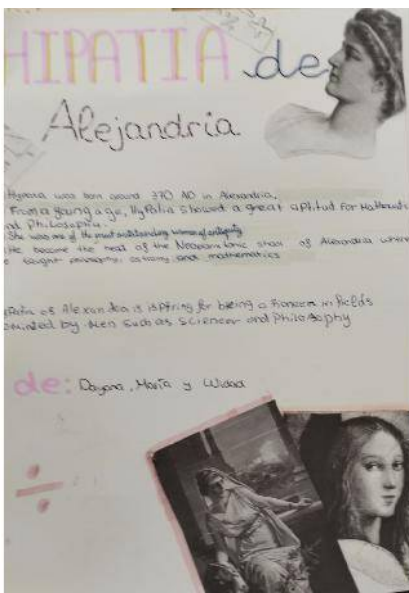 HIPATIA de
Alejandria
was born around 370 AD in Alexandria.
From a young age, HyPatia showed a great aptitud For Mathematic
and Philosophy.
She was one of the most outstanding women of antiquity
He become the head of the of Alexandria where
taught philosophy, and mathematics
is ispiring for being a in fields
by Men such as Science and Philosophy
de: Dayana, María y Widad
÷